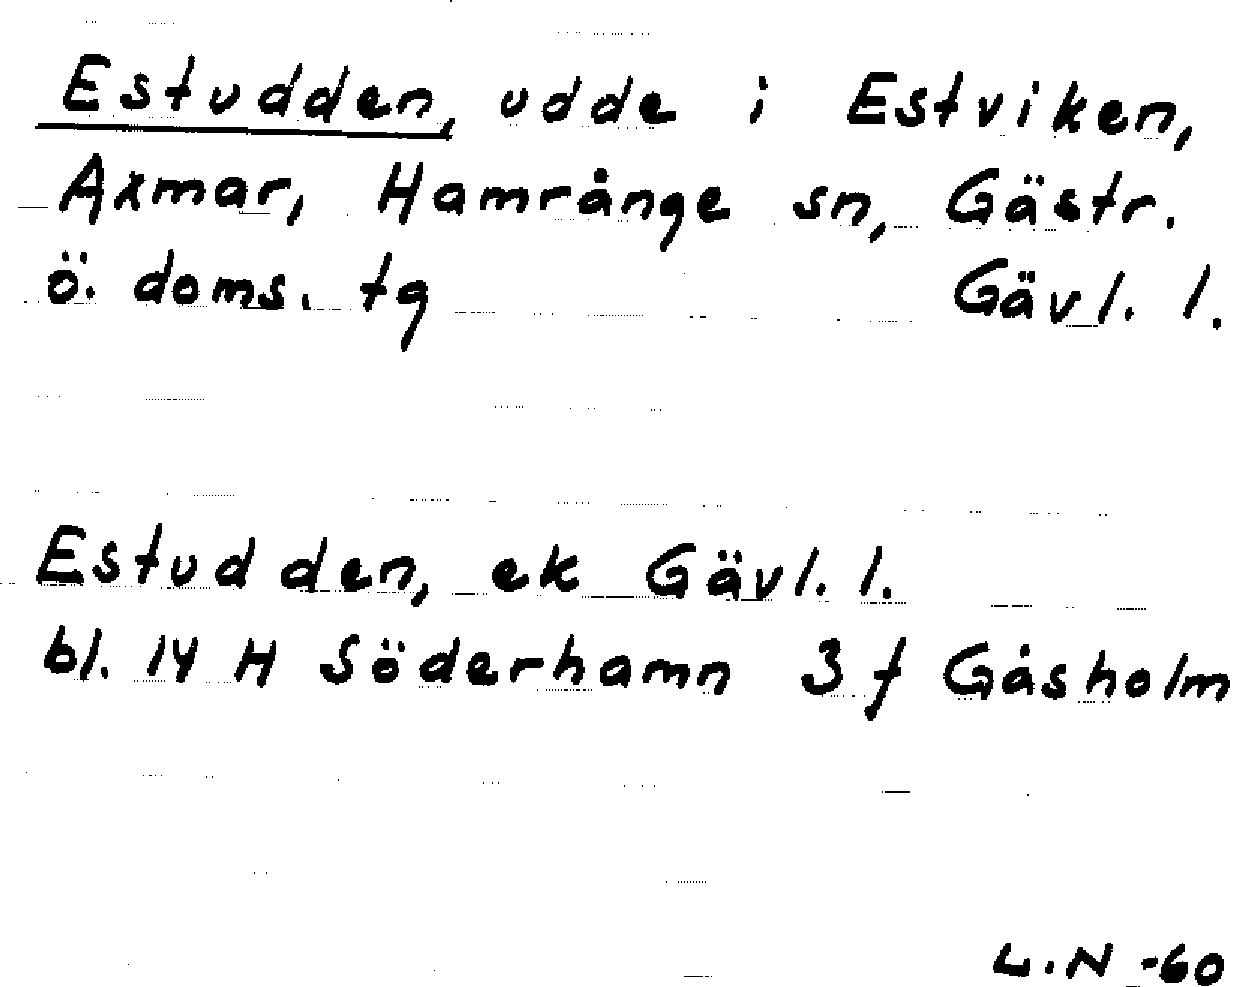 Estudden, udde i Estviken,
Axmar, Hamrånge sn, Gästr.
ö. doms. tg Gävl. l.
Estudden, ek Gävl. l.
bl. 14 H Söderhamn 3 f Gåsholm
L.N -60